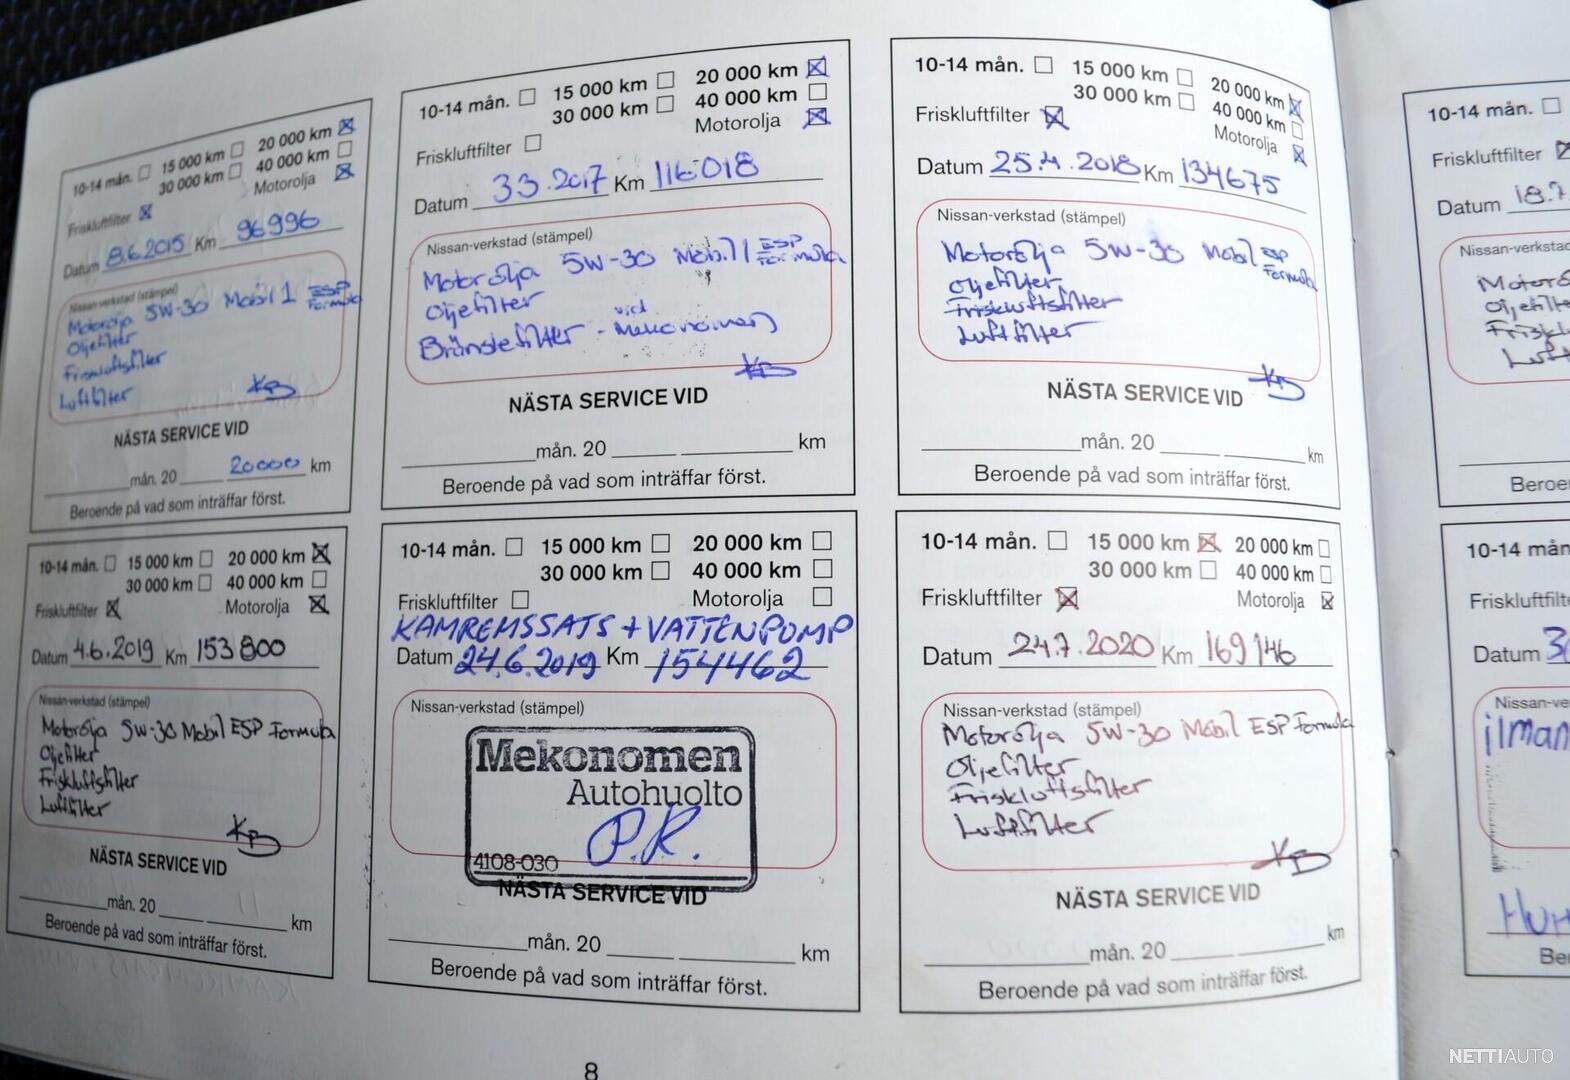 10-14 mån. 15 000 km 20 000 km
30 000 km 40 000 km
Friskluftfilter Motorolja
Datum 8.6.2015 Km 96996
Nissan-verkstad (stämpel)
Motorolja 5W-30 Mobil 1 ESP Formula
Oljefilter
Friskluftsfilter
Luftfilter
KB
NÄSTA SERVICE VID
mån. 20 20000 km
Beroende på vad som inträffar först.
10-14 mån. 15 000 km 20 000 km
30 000 km 40 000 km
Motorolja
Friskluftfilter
Datum 3.3.2017 Km 116018
Nissan-verkstad (stämpel)
Motorolja 5W-30 Mobil 1 ESP Formula
Oljefilter
Bränslefilter - vid Mekonomen
KB
NÄSTA SERVICE VID
mån. 20 km
Beroende på vad som inträffar först.
10-14 mån. 15 000 km 20 000 km
30 000 km 40 000 km
Friskluftfilter Motorolja
Datum 25.4.2018 Km 134675
Nissan-verkstad (stämpel)
Motorolja 5W-30 Mobil ESP Formula
Oljefilter
Friskluftsfilter
Luftfilter
KB
NÄSTA SERVICE VID
mån. 20 km
Beroende på vad som inträffar först.
10-14 mån. 15 000 km 20 000 km
30 000 km 40 000 km
Friskluftfilter Motorolja
Datum 4.6.2019 Km 153800
Nissan-verkstad (stämpel)
Motorolja 5W-30 Mobil ESP Formula
Oljefilter
Friskluftsfilter
Luftfilter
KB
NÄSTA SERVICE VID
mån. 20 km
Beroende på vad som inträffar först.
10-14 mån. 15 000 km 20 000 km
30 000 km 40 000 km
Friskluftfilter Motorolja
KAMREMSSATS + VATTENPUMP
Datum 24.6.2019 Km 154462
Nissan-verkstad (stämpel)
Mekonomen
Autohuolto
P.R.
4108-030
NÄSTA SERVICE VID
mån. 20 km
Beroende på vad som inträffar först.
10-14 mån. 15 000 km 20 000 km
30 000 km 40 000 km
Friskluftfilter Motorolja
Datum 24.7.2020 Km 169146
Nissan-verkstad (stämpel)
Motorolja 5W-30 Mobil ESP Formula
Oljefilter
Friskluftsfilter
Luftfilter
KB
NÄSTA SERVICE VID
mån. 20 km
Beroende på vad som inträffar först.
8
10-14 mån.
Friskluftfilter
Datum 18.7
Nissan-verkstad
10-14 mån
Friskluftfilte
Datum 3
Nissan-ve
ilman
NETTIAUTO